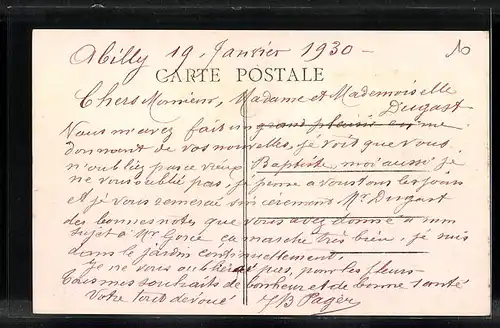 Abilly 19 Janvier 1930 - 10
CARTE POSTALE
Chers Monsieur, Madame et Mademoiselle
Dugast
Vous m'avez fait un grand plaisir en me
donnant de vos nouvelles, je vois que vous
n'oubliez pas ce vieux Baptiste, moi aussi je
ne vous oublié pas, je pense a vous tous les jours
et je vous remercie Mr Dugast
des bonnes notes que vous avez donné a mon
sujet à Mr ça marche très bien, je suis
dans le jardin continuellement,
Je ne vous oublierai pas, pour les fleurs -
Tous mes souhaits de bonheur et de bonne santé
Votre tout dévoué JB Pager